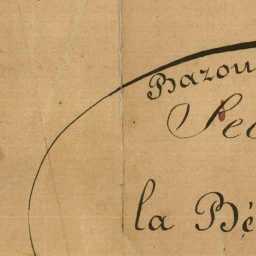 Bazou
Sec
la Bé